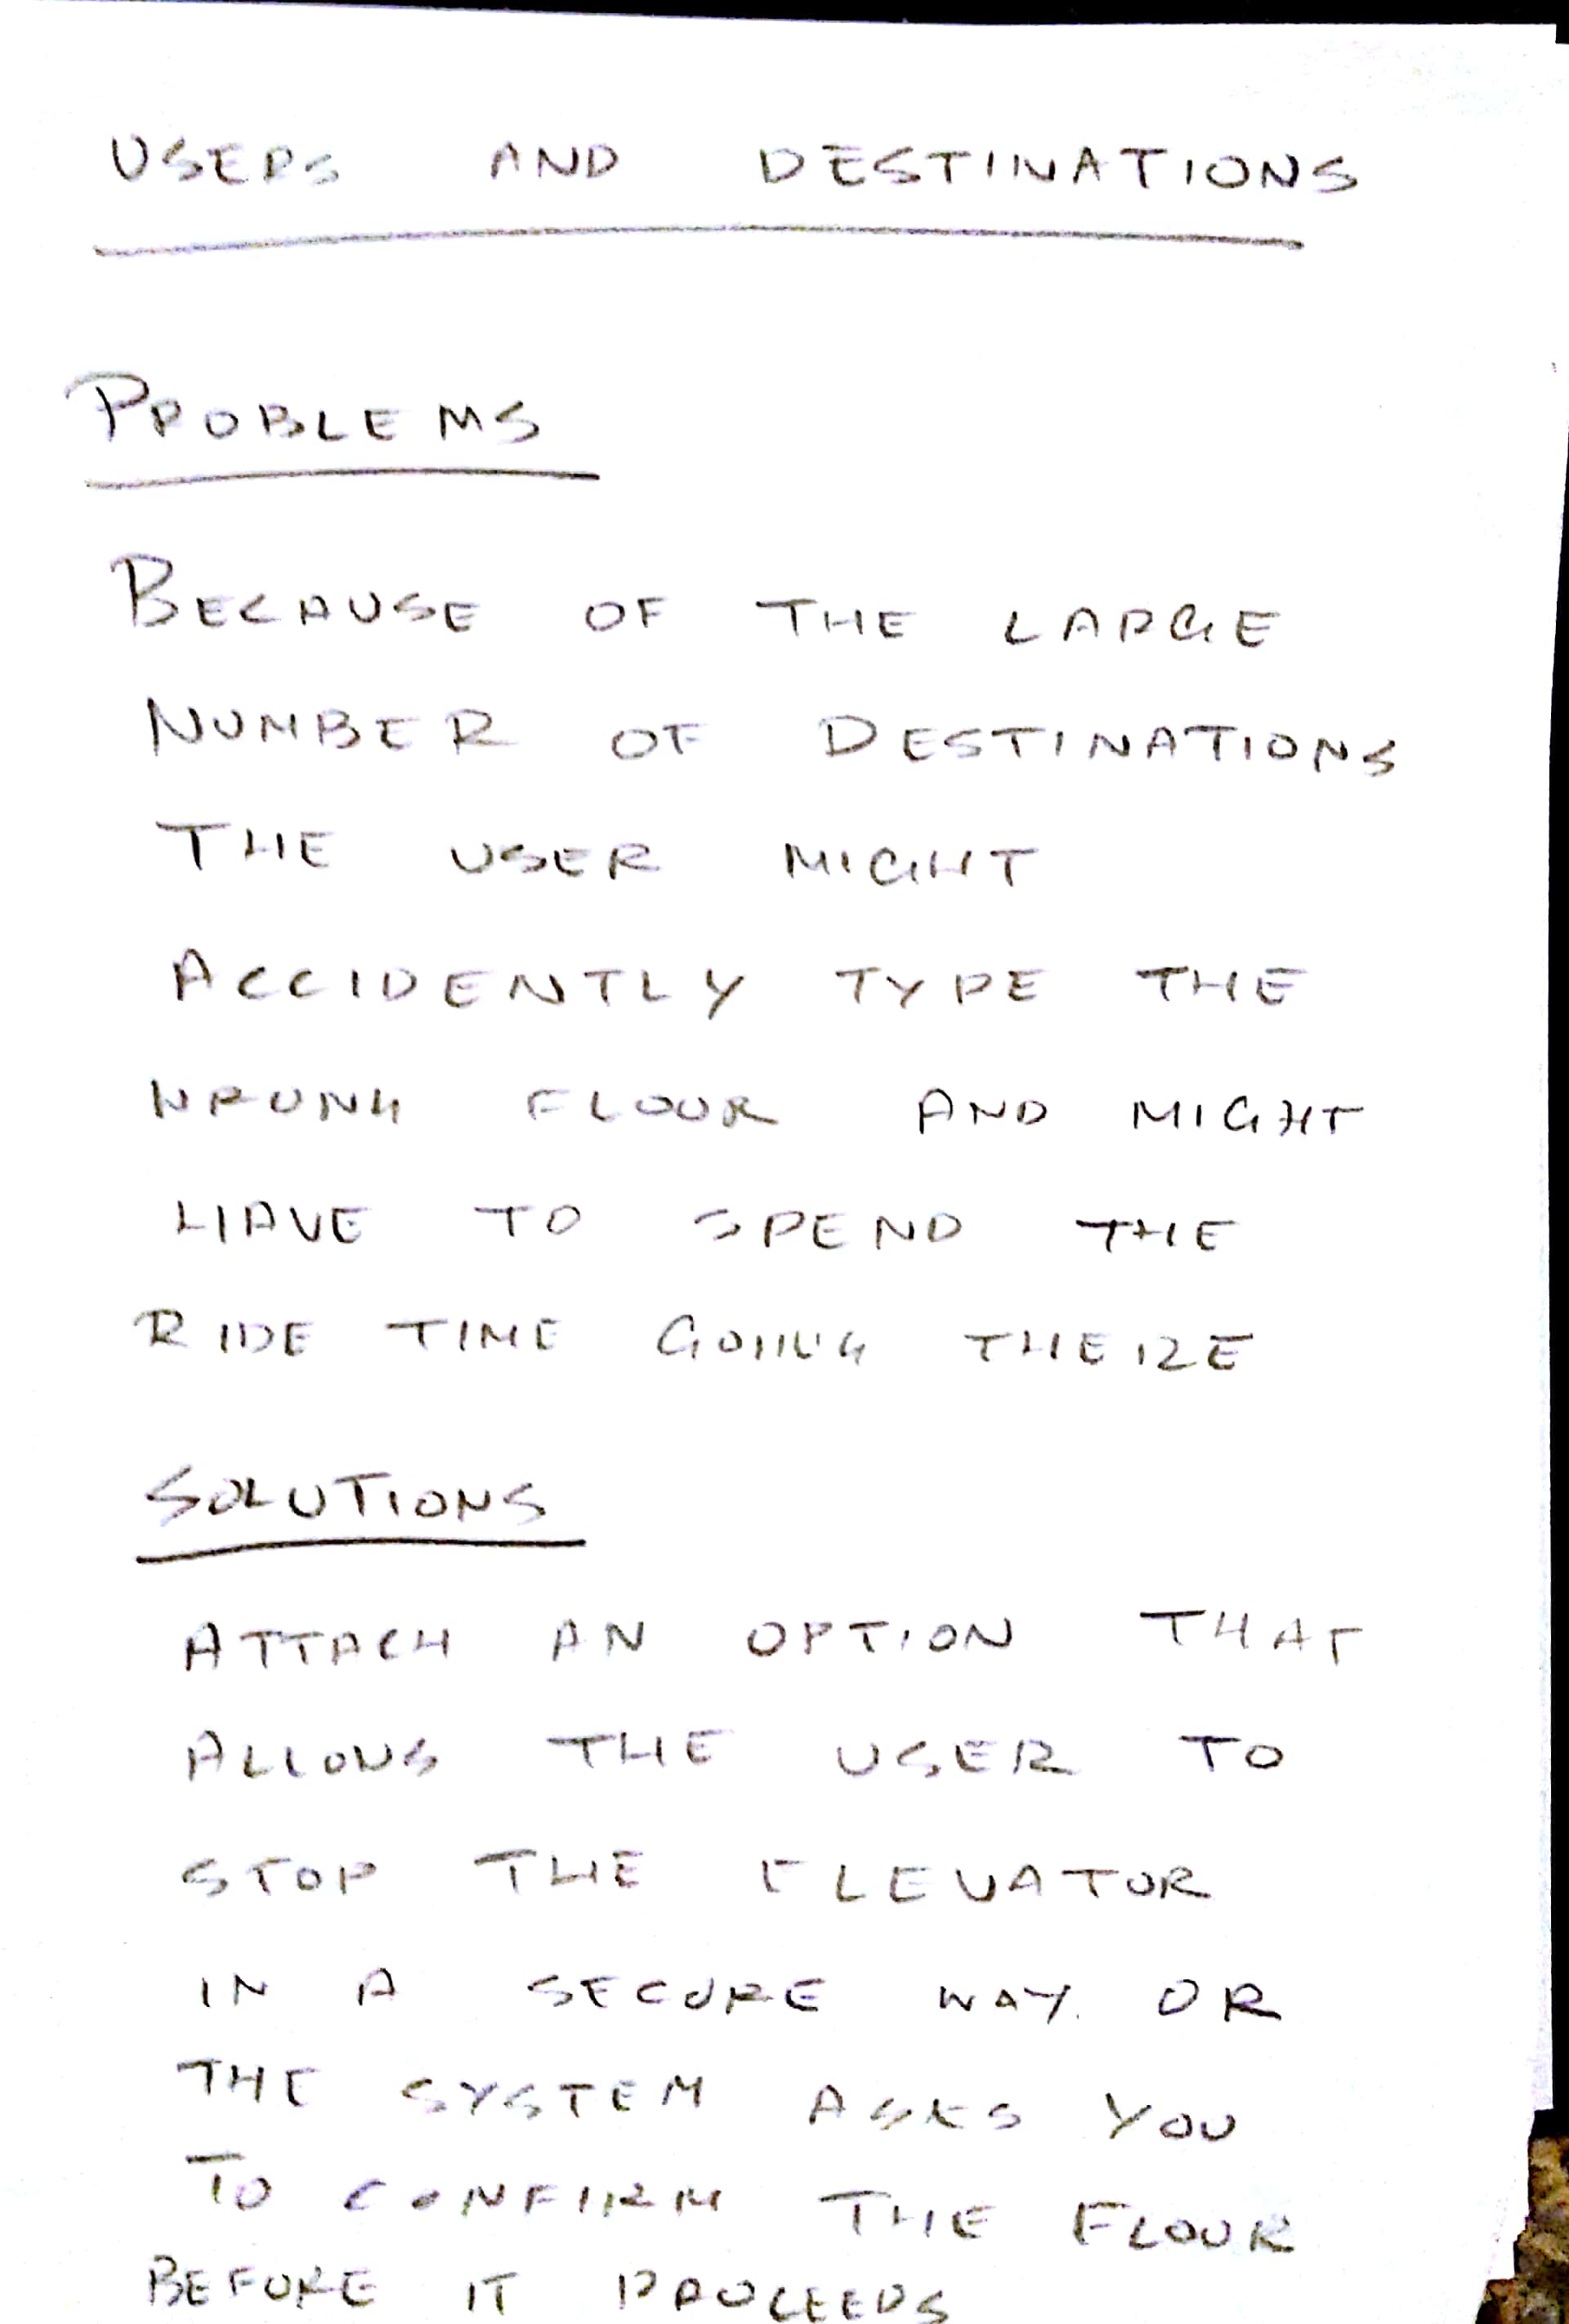 USERS AND DESTINATIONS
PROBLEMS
BECAUSE OF THE LARGE
NUMBER OF DESTINATIONS
THE USER MIGHT
ACCIDENTLY TYPE THE
WRONG FLOOR AND MIGHT
HAVE TO SPEND THE
RIDE TIME GOING THERE
SOLUTIONS
ATTACH AN OPTION THAT
ALLOWS THE USER TO
STOP THE ELEVATOR
IN A SECURE WAY. OR
THE SYSTEM ASKS YOU
TO CONFIRM THE FLOOR
BEFORE IT PROCEEDS